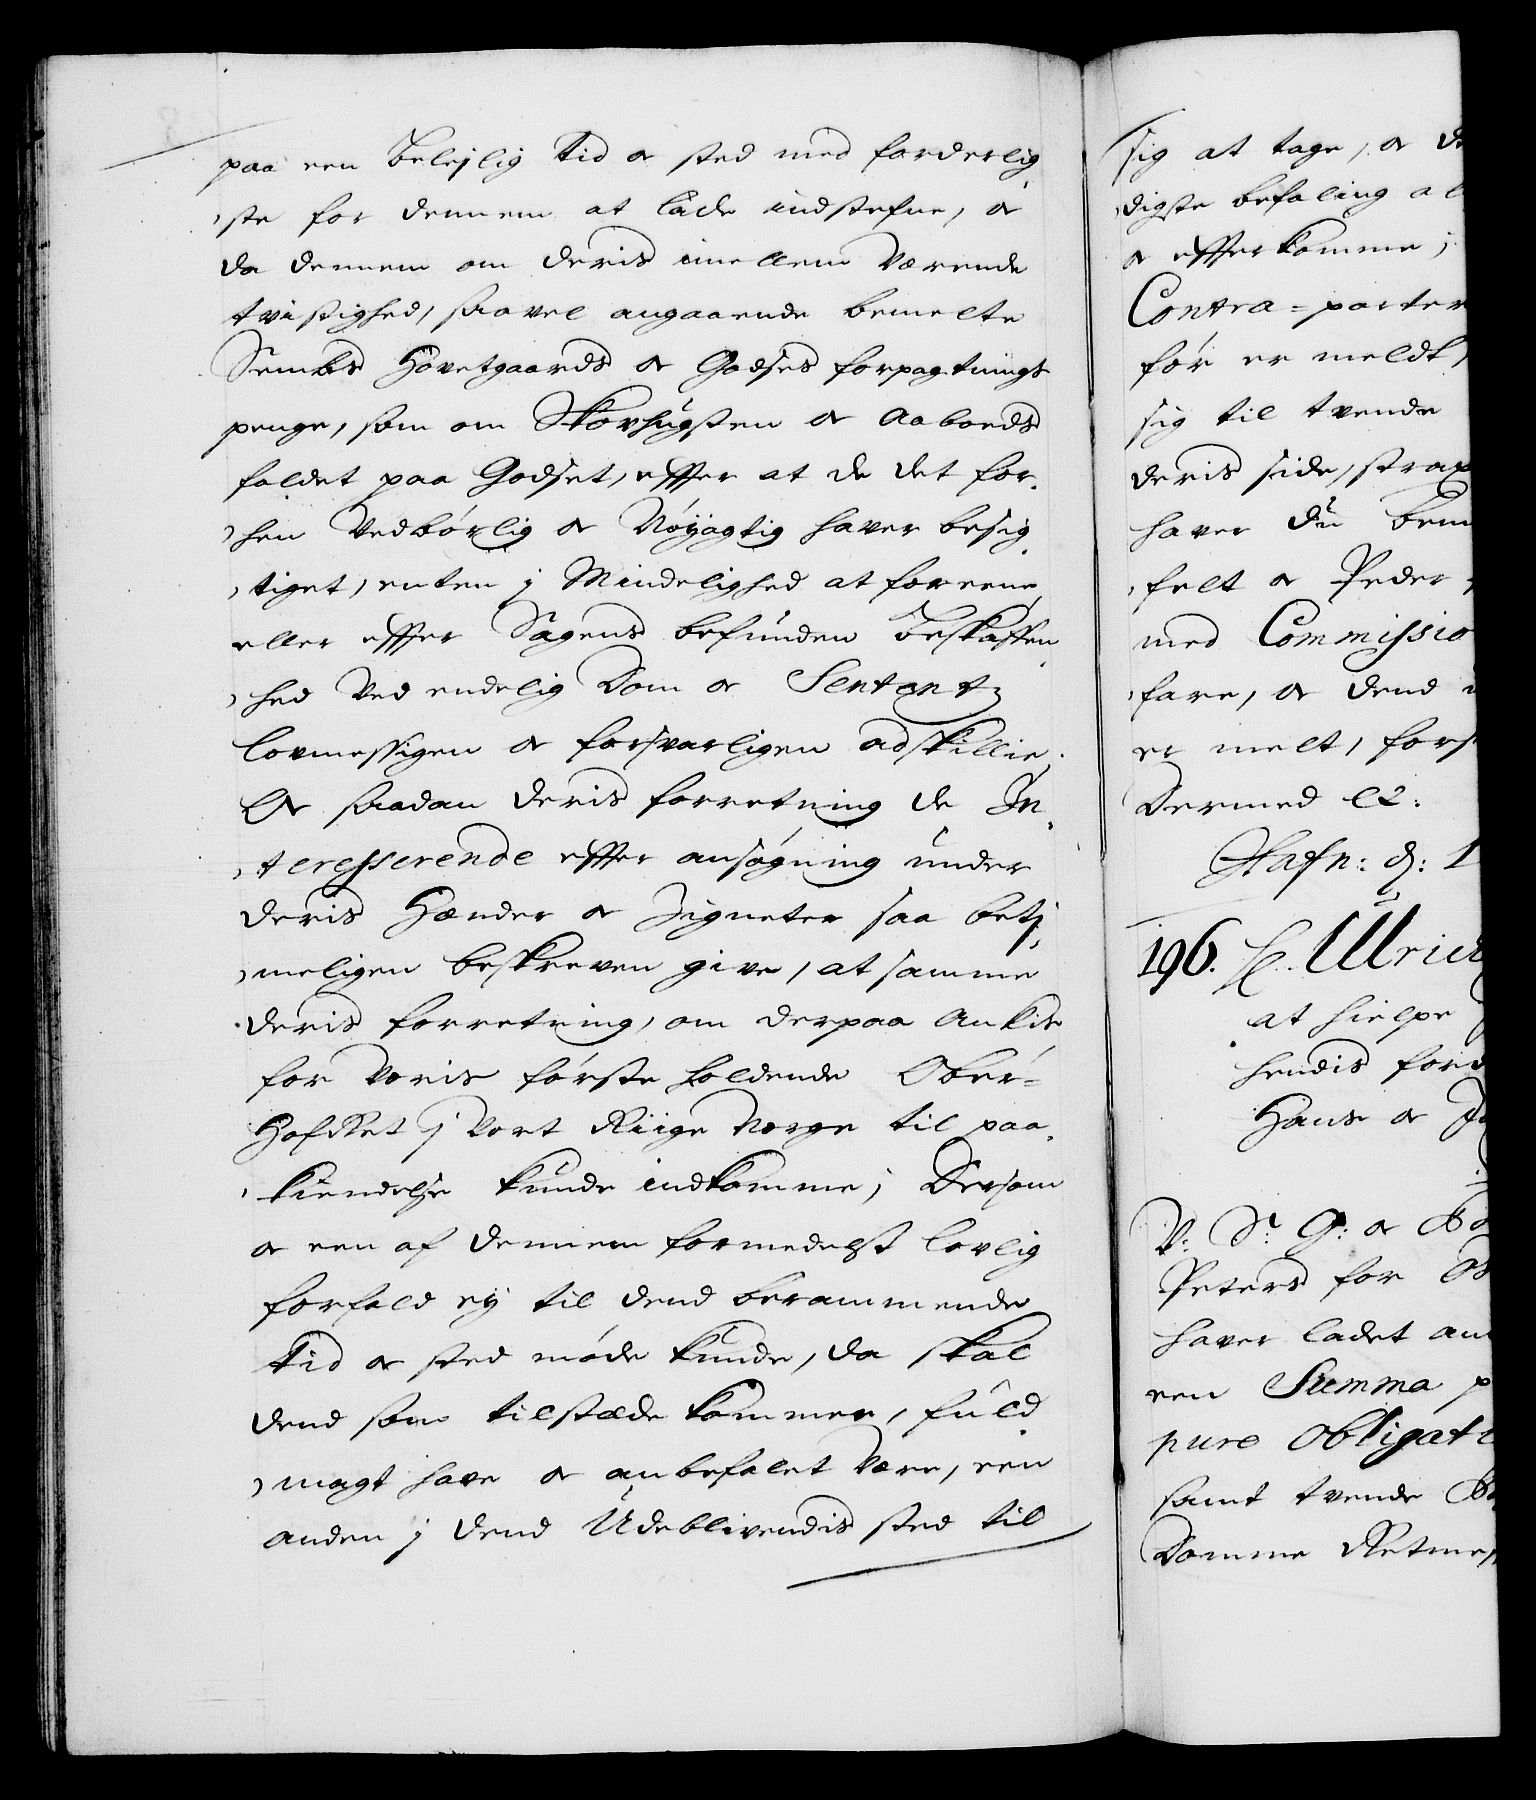 paa een Belejlig Tid og sted med forderlig
ste for dennem at lade indstefne, og
da dennem om deris imellem Værende
tvistighed, saavel angaaende bemelte
Sembs Hovetgaards og Godses forpagtnings
penge, som om Skovhugsten og Aabords
faldet paa Godset, effter at de det for
hen Vedbørlig og Nøyagtig haver besig
tiget, enten j Mindelighed at foreene
eller effter Sagens befunden Beskaffen
hed Ved endelig Dom og Sententz
lovmessigen og forsvarligen adskillie;
Og saadan deris forretning de In
teresserende effter ansøgning under
deris Hænder og Signeter saa betj
meligen beskreven give, at samme
deris forretning, om derpaa Ankis,
for Voris første holdende Ober-
HofRet j Vort Riige Norge til paa
kiendelse kunde indkomme; Dersom
og een af dennem formedelst lovlig
forfald ey til dend berammende
Tid og sted møde kunde, da skal
dend som tilstæde kommer, fuld
magt have og anbefalet Være, een
anden j dend Udeblivendis sted til
sig at tage, og d
digste befaling al
og effterkomme;
Contra-parter
før er meldt,
sig til tvende
deris side, strax
haver du bem
felt og Peder
med Commissio
fare, og dend
er melt, fors
Dermed etc:
Hafn: d: 1
196. H. Ulrich
at hielpe
hendis ford
Hans og
V: S: G: og
Peters for
haver ladet an
een Summa p
pure Obligati
samt tvende
Domme Retmes